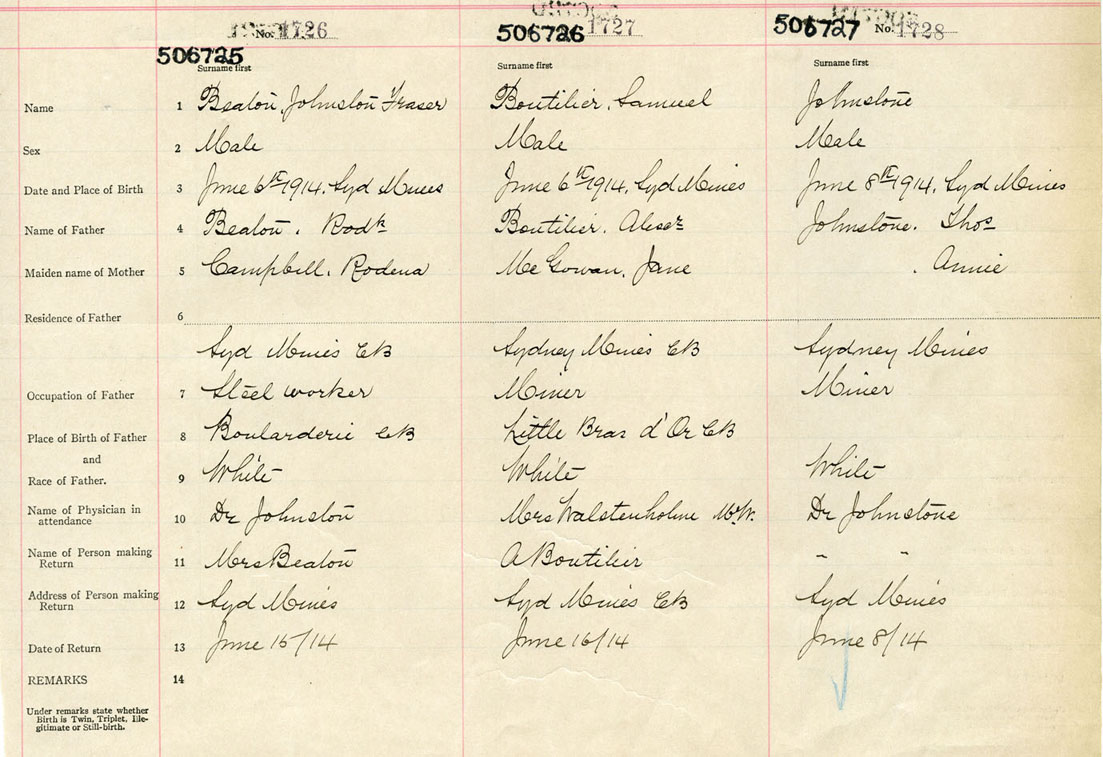 No. 1726 1727 No. 1728
506725 506726 506727
Surname first Surname first Surname first
Name 1 Beaton, Johnston Fraser Boutilier, Samuel Johnstone
Sex 2 Male Male Male
Date and Place of Birth 3 June 6th 1914. Syd Mines June 6th 1914, Syd Mines June 8th 1914, Syd Mines
Name of Father 4 Beaton, Rodk Boutilier, Alexr Johnstone, Thos
Maiden name of Mother 5 Campbell, Rodena McGowan, Jane , Annie
Residence of Father 6
Syd Mines CB Sydney Mines CB Sydney Mines
Occupation of Father 7 Steel worker Miner Miner
Place of Birth of Father 8 Boularderie CB Little Bras d'Or CB
and
Race of Father. 9 White White White
Name of Physician in
attendance 10 Dr Johnston Mrs Walstenholme M.W. Dr Johnstone
Name of Person making
Return 11 Mrs Beaton A Boutilier " "
Address of Person making
Return 12 Syd Mines Syd Mines CB Syd Mines
Date of Return 13 June 15/14 June 16/14 June 8/14
REMARKS 14
Under remarks state whether
Birth is Twin, Triplet, Ille-
gitimate or Still-birth.